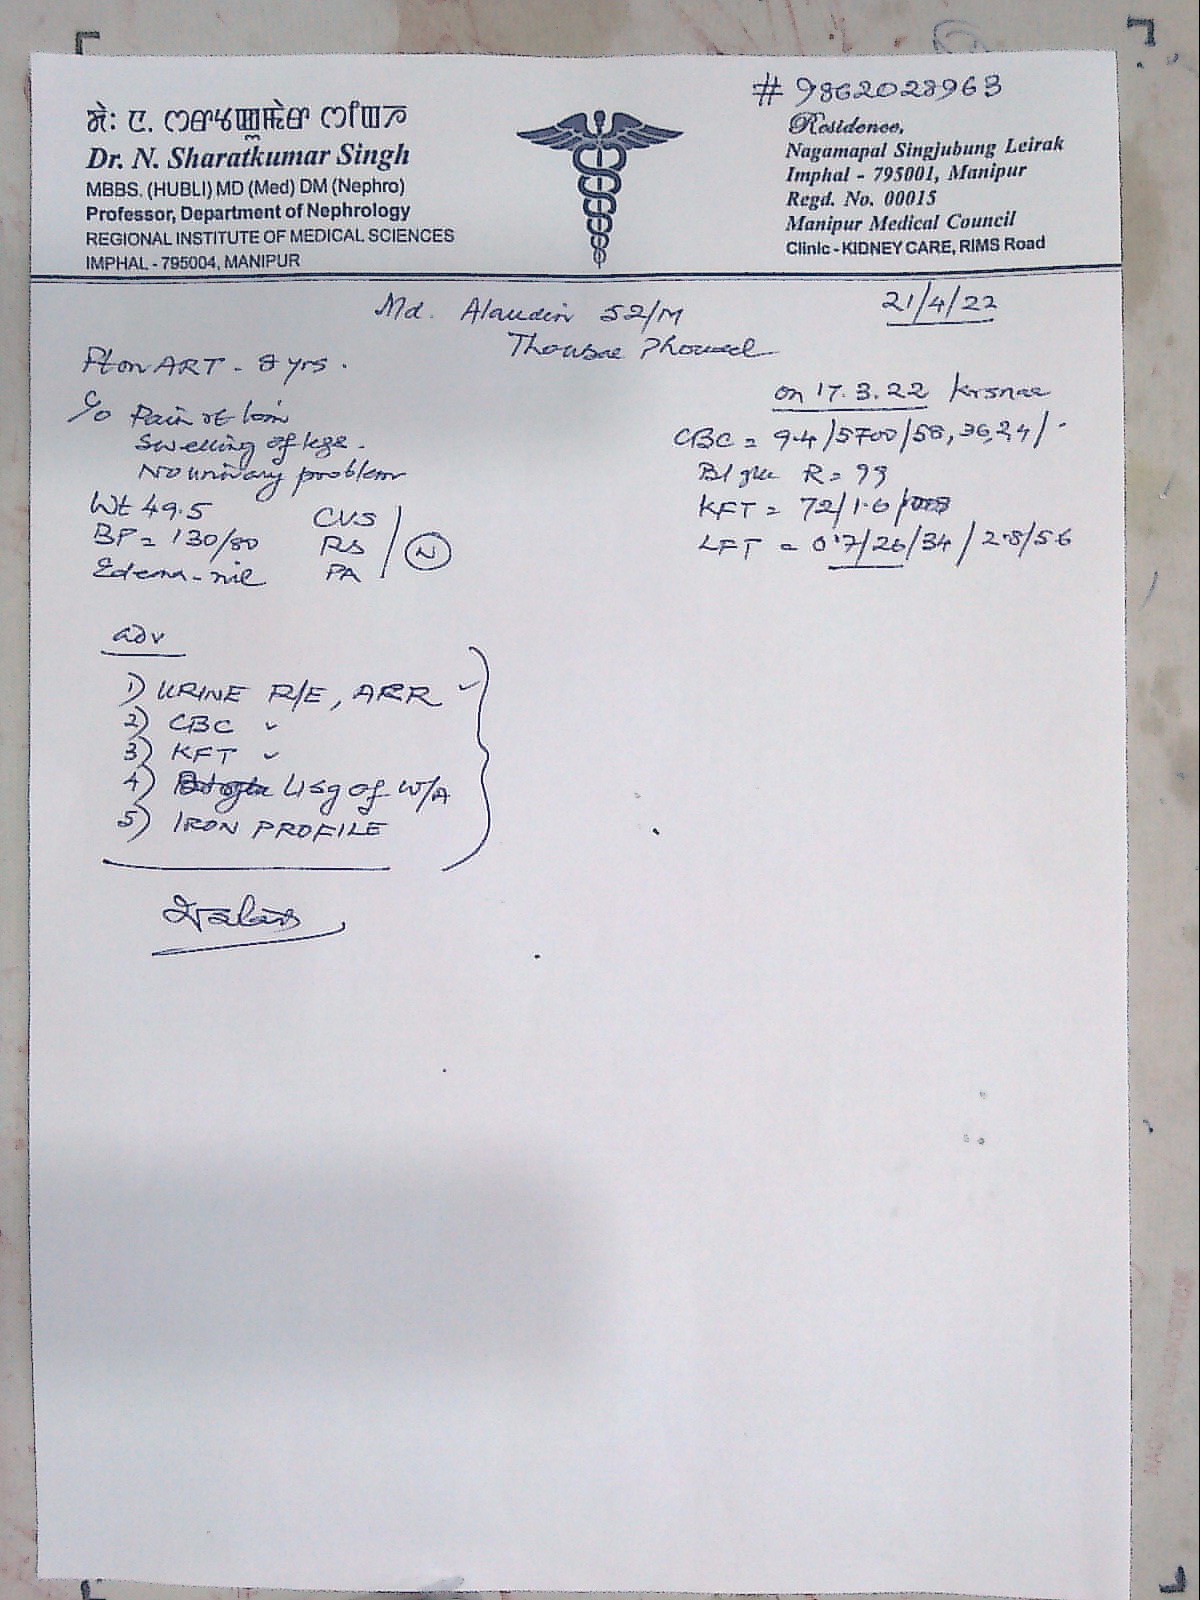 # 9862028963
Dr. N. Sharatkumar Singh
MBBS. (HUBLI) MD (Med) DM (Nephro)
Professor, Department of Nephrology
REGIONAL INSTITUTE OF MEDICAL SCIENCES
IMPHAL - 795004, MANIPUR
Residence,
Nagamapal Singjubung Leirak
Imphal - 795001, Manipur
Regd. No. 00015
Manipur Medical Council
Clinic - KIDNEY CARE, RIMS Road
21/4/22
Md. Alaudin 52/M
Pt on ART - 8 yrs.
c/o Pain rt loin
Swelling of legs -
No urinary problem
Wt 49.5
BP = 130/80
Edema - nil
CVS
RS
PA
N
on 17.3.22
CBC = 9.4/5700/58, 36,
Bl glu R = 99
KFT = 72/1.6/
LFT = 0.7/26/34/2.8/56
adv
1) URINE R/E, ACR
2) CBC
3) KFT
4) USg of W/A
5) IRON PROFILE